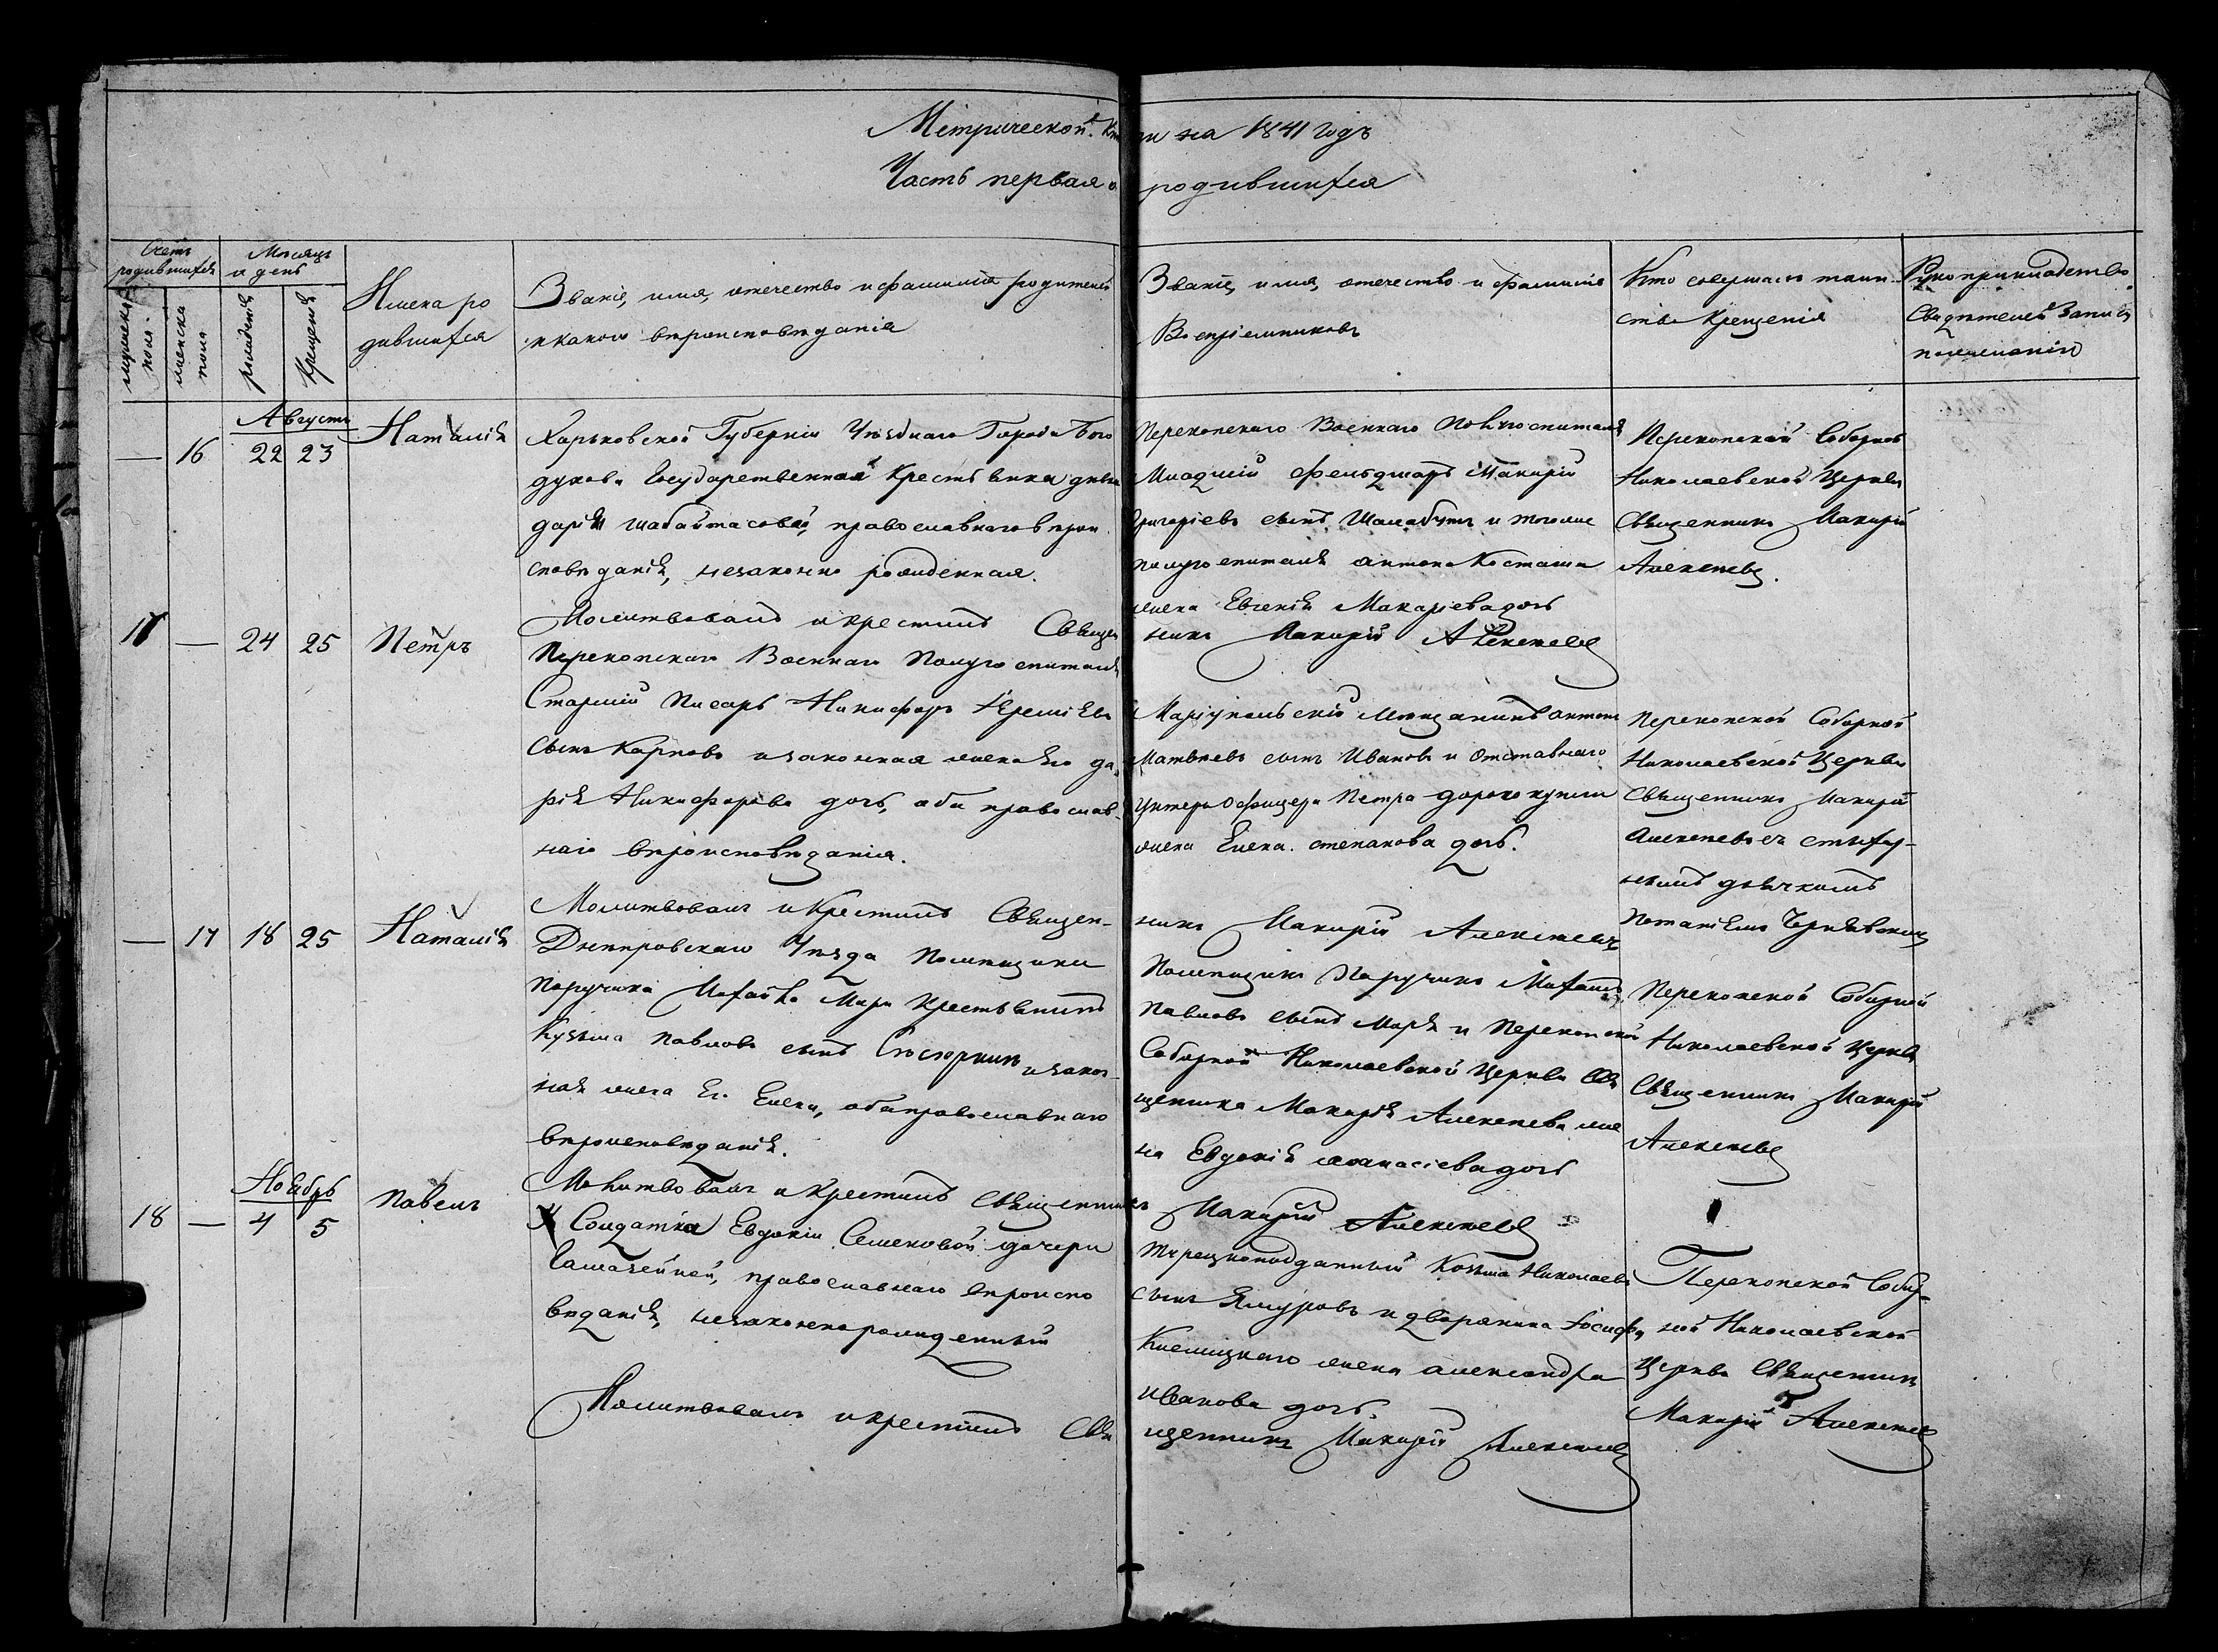 Метрической Кни ги на 1841 годъ
Часть первая о родившихся
Счетъ родившихся
мужеска пола
женска пола
Мѣсяцъ и день
рожденія
крещенія
Имена ро
дившихся
Званіе, имя, отечество и фамилія родителей
и какого вѣроисповѣданія
Званіе, имя, отечество и фамилія
Воспріемниковъ
Кто совершалъ таин
ство Крещенія
Рукоприкладство
Свидѣтелей записи
по желанію
Августъ
— 16 22 23 Наталія
Харьковской Губерніи Уѣзднаго Города Бого
духова Государственная Крестьянка дѣвка
Дарія православнаго вѣрои
сповѣданія, незаконно рожденная.
Молитвовалъ и крестилъ Священ
Перекопскаго Военнаго Полугоспиталя
Младшій Фельдшаръ Макарій
Григоріевъ сынъ Шалабутъ и тогоже
полугоспиталя Антона Косташа
жена Евгенія Макаріева дочь
никъ Макарій Алексѣевъ
Перекопской Соборной
Николаевской Церкви
Священникъ Макарій
Алексѣевъ.
17 — 24 25 Петръ
Перекопскаго Военнаго Полугоспиталя
Старшій Писарь Никифоръ Ереміевъ
сынъ Карповъ и законная жена Его Да
рія Никифорова дочь, оба православ
наго вѣроисповѣданія.
Молитвовалъ и Крестилъ Священ-
Маріупольскій Мѣщанинъ Антонъ
Матвѣевъ сынъ Ивановъ и Отставнаго
Унтеръ Офицера Петра
жена Елена Степанова дочь.
никъ Макарій Алексѣевъ
Перекопской Соборной
Николаевской Церкви
Священникъ Макарій
Алексѣевъ съ
дьячкомъ
— 17 18 25 Наталія
Днепровскаго Уѣзда Помѣщика
Поручика Михайла Мара Крестьянинъ
Кузьма Павловъ сынъ и закон-
ная жена Его Елена, оба православнаго
вѣроисповѣданія.
Молитвовалъ и крестилъ Священник
Помѣщикъ Поручикъ Михаилъ
Павловъ сынъ Мара и Перекопской
Соборной Николаевской Церкви Свя
щенника Макарія Алексѣева же
на Евдокія Афанасіева дочь
ъ Макарій Алексѣевъ
Перекопской Соборной
Николаевской Церкви
Священникъ Макарій
Алексѣевъ
Ноябрь
18 — 4 5 Павелъ
Солдатка Евдокіи Семеновой дочери
православнаго вѣроиспо
вѣданія, незаконно рожденный
Молитвовалъ и крестилъ Свя
Турецкоподданный Козьма Николаевъ
сынъ и дворянина Іосифа
жена Александра
Иванова дочь.
щенникъ Макарій Алексѣевъ
Перекопской Собор-
ной Николаевской
Церкви Священникъ
Макарій Алексѣевъ